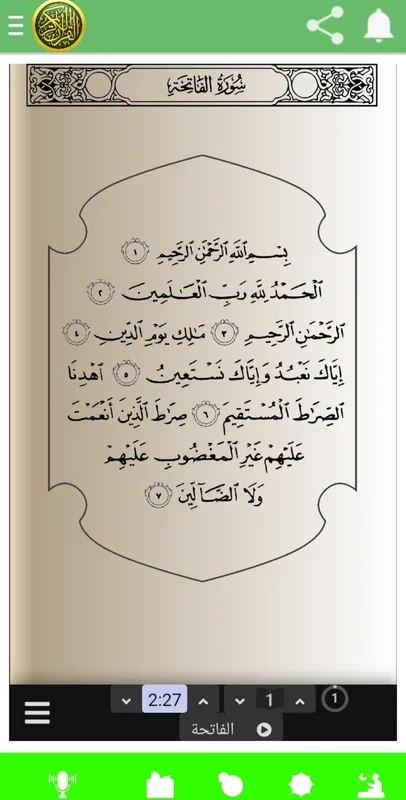 سُورَةُ الفَاتِحَةِ
بِسْمِ ٱللَّهِ ٱلرَّحْمَٰنِ ٱلرَّحِيمِ ١
ٱلْحَمْدُ لِلَّهِ رَبِّ ٱلْعَٰلَمِينَ ٢
ٱلرَّحْمَٰنِ ٱلرَّحِيمِ ٣ مَٰلِكِ يَوْمِ ٱلدِّينِ ٤
إِيَّاكَ نَعْبُدُ وَإِيَّاكَ نَسْتَعِينُ ٥ ٱهْدِنَا
ٱلصِّرَٰطَ ٱلْمُسْتَقِيمَ ٦ صِرَٰطَ ٱلَّذِينَ أَنْعَمْتَ
عَلَيْهِمْ غَيْرِ ٱلْمَغْضُوبِ عَلَيْهِمْ
وَلَا ٱلضَّآلِّينَ ٧
2:27 1 1
الفاتحة